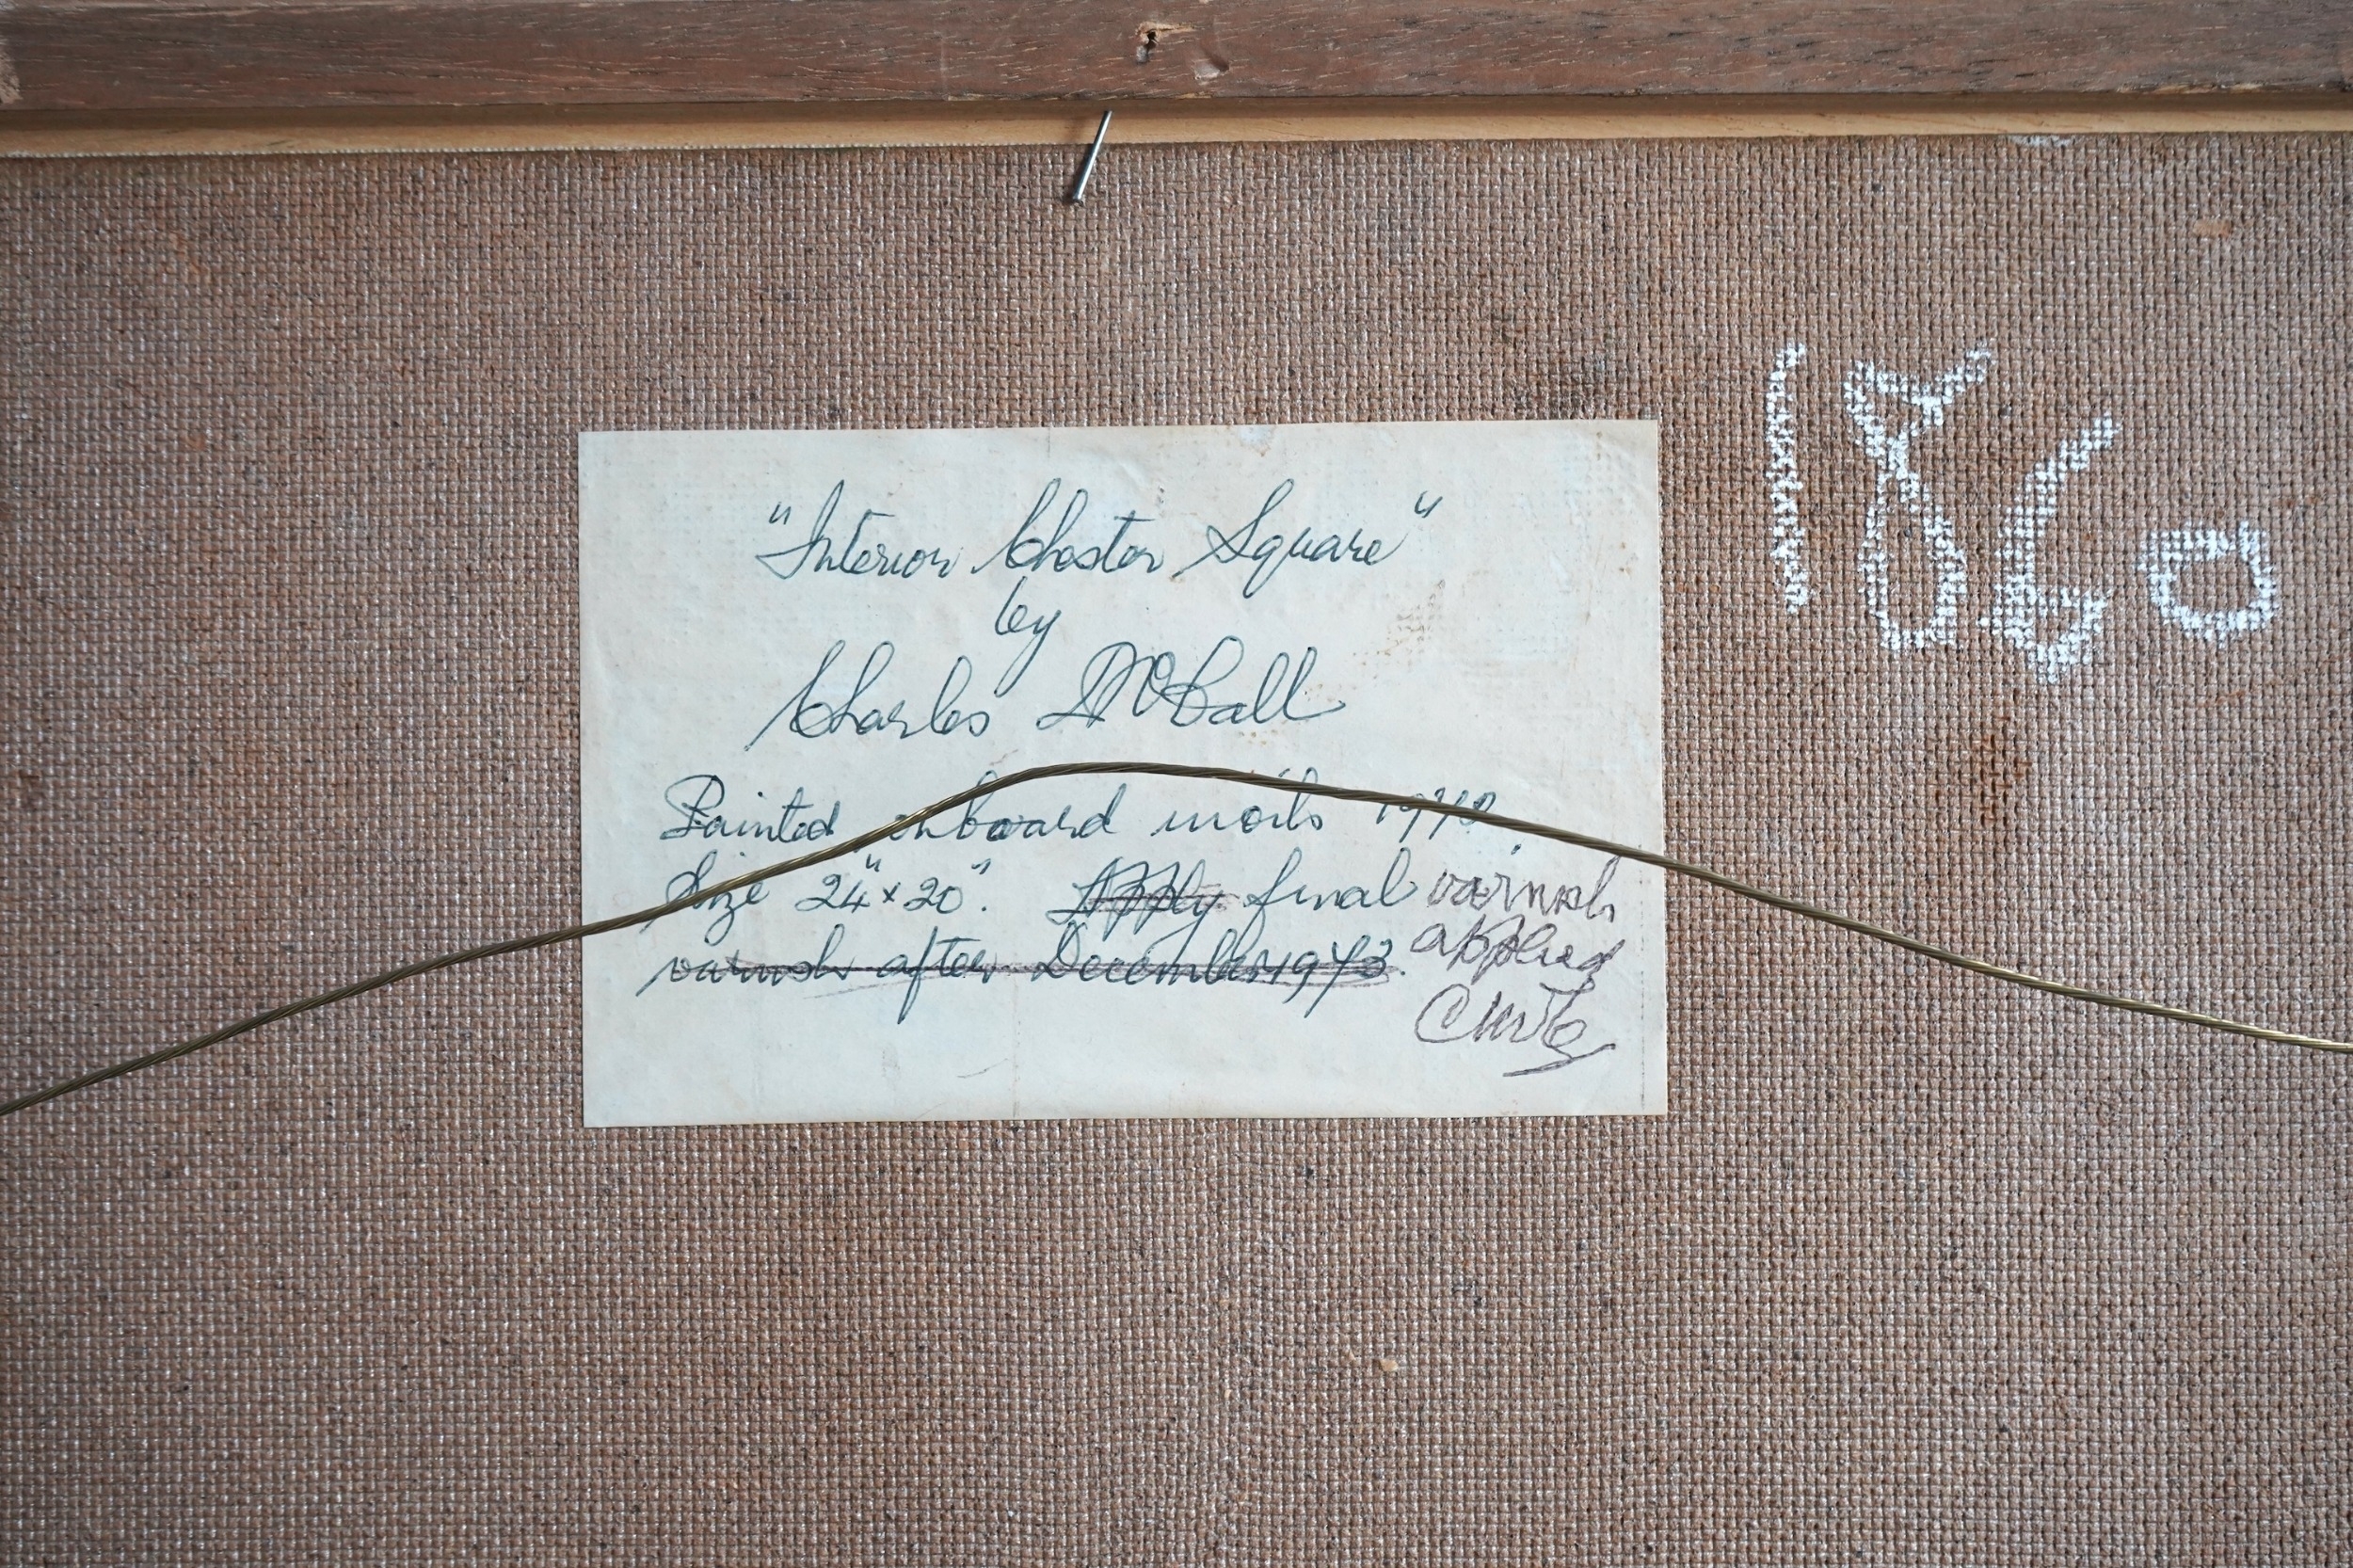 "Interior Chester Square"
by
Charles McCall
Painted on board in oils
Size 24" x 20". Apply final varnish
varnish after December 1973. applied
1860